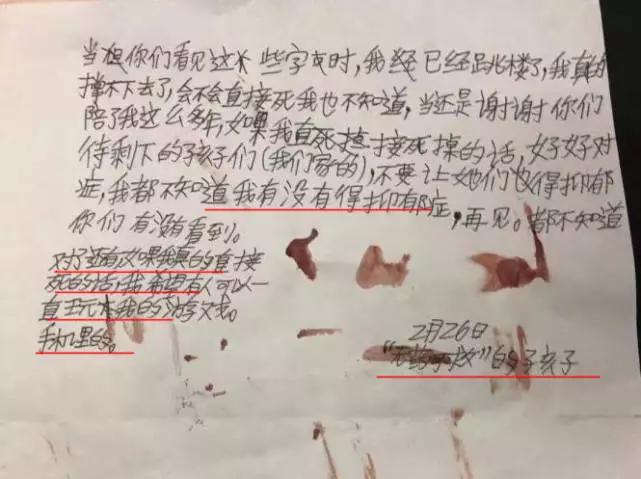 当你们看见这些字时,我已经跳楼了,我真的
撑不下去了,会不会直接死我也不知道,当还是谢谢你们
陪了我这么多年,如果我直接死掉的话,好好对
待剩下的孩子们(我们家的),不要让她们也得抑郁
症,我都不知道我有没有得抑郁症,再见。都不知道
你们有没有看到。
对了还有如果我真的直接
死的话,我希望有人可以一
直玩我的游戏。
手机里的。
2月26日
"无药可救"的孩子